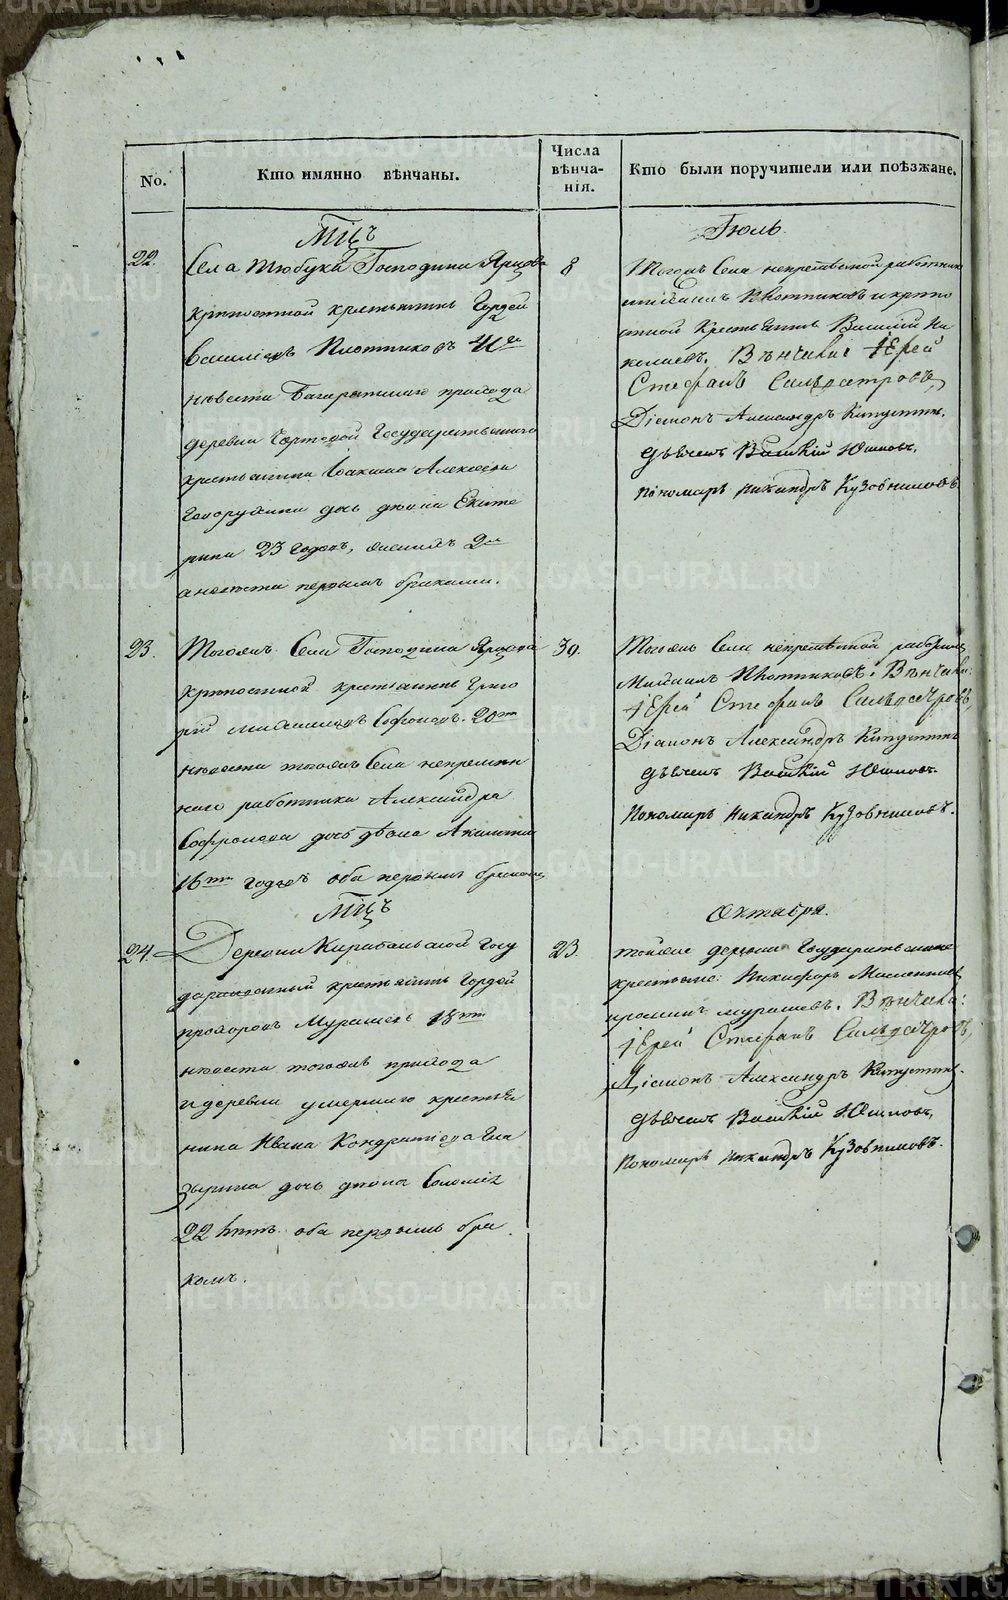 No.
Кто имянно вѣнчаны.
Числа
вѣнча-
нія.
Кто были поручители или поѣзжане.
Мцъ
Іюль.
22.
Села Тюбука Господина Ярцова
крѣпостной крестьянинъ Гордей
Василіевъ Плотниковъ
невѣста прихода
деревни Государственнаго
крестьянина Алексѣева
дочь дѣвица Екате
рина 23 годовъ, женихъ 2мъ
а невѣста первымъ браками.
8
Тогожъ Села непремѣнной работникъ
Плотниковъ и крѣпо
стной Крестьянинъ Василій Ни
колаевъ. Вѣнчали: Іерей
Стефанъ Сильвестровъ,
Діаконъ Александръ Капустинъ.
Дьячекъ Василій Юшковъ.
Пономарь Никандръ Кузовниковъ
23.
Тогожъ Села Господина Ярцова
крѣпостной крестьянинъ Григо
рій Софроновъ 20ти
невѣста тогожъ Села непремѣн
наго работника Александра
Софронова дочь дѣвица
16ти годовъ оба первымъ бракомъ
30.
Тогожъ Села непремѣнной работникъ
Михаилъ Плотниковъ: Вѣнчали:
Іерей Стефанъ Сильвестровъ,
Діаконъ Александръ Капустинъ
Дьячекъ Василій Юшковъ.
Пономарь Никандръ Кузовниковъ.
Мцъ
Октября.
24
Деревни Карабольской Госу
дарственный крестьянинъ Гордей
Прохоровъ Мурашевъ 18ти
невѣста тогожъ прихода
и деревни умершаго крестья
нина Ивана Кондратьева Гла
зырина дочь дѣвица
22 лѣтъ оба первымъ бра
комъ.
23.
тойже деревни Государственные
крестьяне: Никифоръ
Мурашевъ. Вѣнчали:
Іерей Стефанъ Сильвестровъ,
Діаконъ Александръ Капустинъ.
Дьячекъ Василій Юшковъ,
Пономарь Никандръ Кузовниковъ.
METRIKI.GASO-URAL.RU